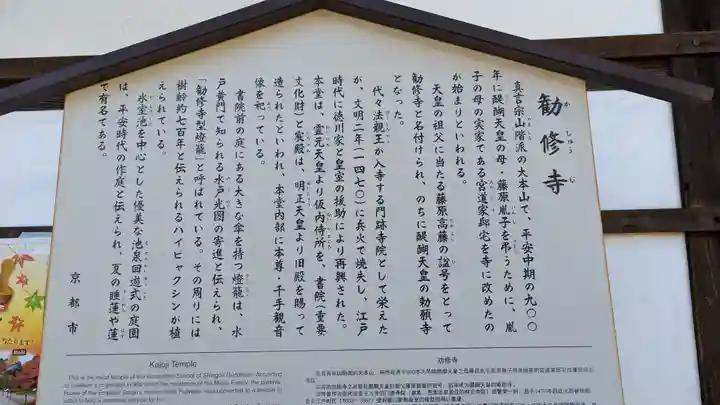 勧修寺
かしゅうじ
真言宗山階派の大本山で、平安中期の九〇〇
年に醍醐天皇の母・藤原胤子を弔うために、胤
子の母の実家である宮道家邸宅を寺に改めたの
が始まりといわれる。
天皇の祖父に当たる藤原高藤の諡号をとって
勧修寺と名付けられ、のちに醍醐天皇の勅願寺
となった。
代々法親王が入寺する門跡寺院として栄えた
が、文明二年(一四七〇)に兵火で焼失し、江戸
時代に徳川家と皇室の援助により再興された。
本堂は、霊元天皇より仮内侍所を、書院(重要
文化財)と宸殿は、明正天皇より旧殿を賜って
造られたといわれ、本堂内部に本尊・千手観音
像を祀っている。
書院前の庭にある大きな傘を持つ燈籠は、水
戸黄門で知られる水戸光圀の寄進と伝えられ、
「勧修寺型燈籠」と呼ばれている。その周りには
樹齢約七百年と伝えられるハイビャクシンが植
えられている。
氷室池を中心とした優美な池泉回遊式の庭園
は、平安時代の作庭と伝えられ、夏の睡蓮や蓮
で有名である。
京都市
Kajuji Temple
This is the head temple of the Yamashina School of Shingon Buddhism. According
劝修寺